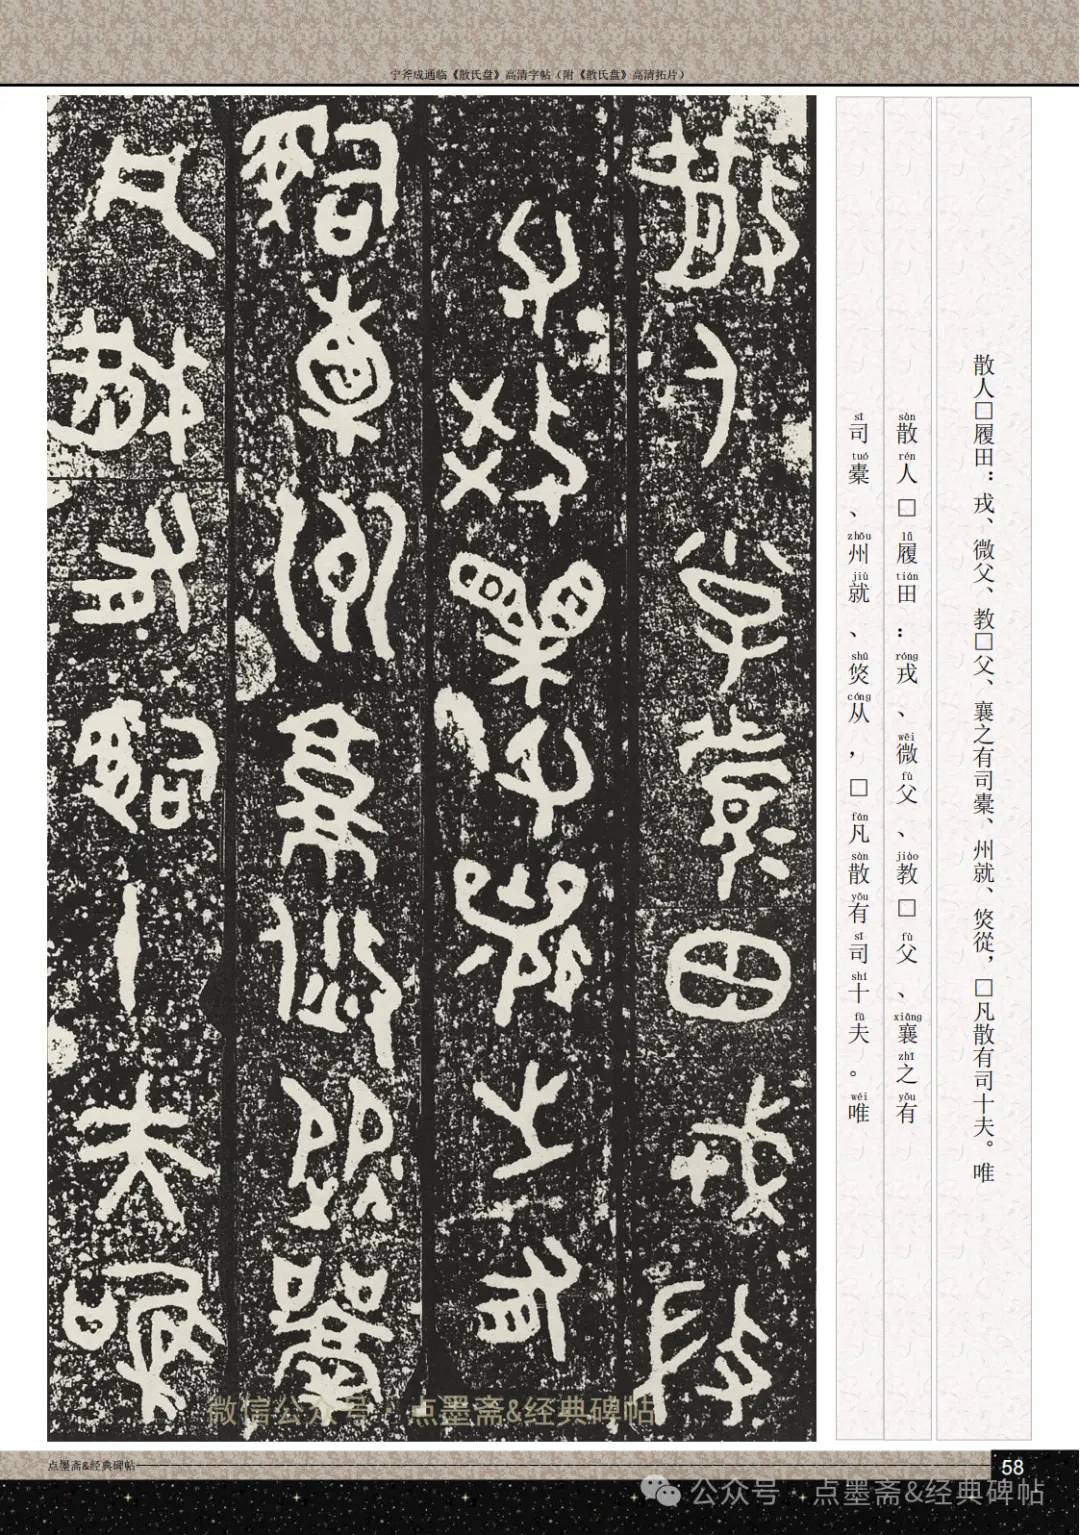 宁斧成通临《散氏盘》高清字帖（附《散氏盘》高清拓片）
散人□履田：戎、微父、教□父、襄之有司橐、州就、焂從，□凡散有司十夫。唯
sàn rén lǚ tián róng wēi fù jiào fù xiāng zhī yǒu
散人□履田：戎、微父、教□父、襄之有
sī tuó zhōu jiù shū cóng fán sàn yǒu sī shí fū wéi
司橐、州就、焂从，□凡散有司十夫。唯
散人小子履田戎微
父效果父襄之有
司橐州就焂從𩰬
凡散有司十夫唯
微信公众号·点墨斋&经典碑帖
点墨斋&经典碑帖
58
公众号·点墨斋&经典碑帖